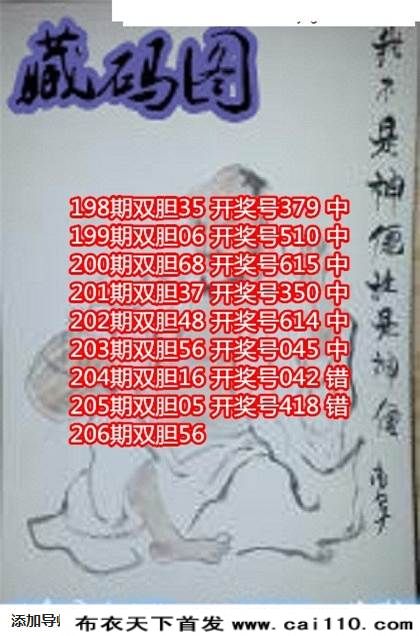 臧码图
我不是神仙性是神仙
198期双胆35 开奖号379 中
199期双胆06 开奖号510 中
200期双胆68 开奖号615 中
201期双胆37 开奖号350 中
202期双胆48 开奖号614 中
203期双胆56 开奖号045 中
204期双胆16 开奖号042 错
205期双胆05 开奖号418 错
206期双胆56
添加导
布衣天下首发 www.cai110.com